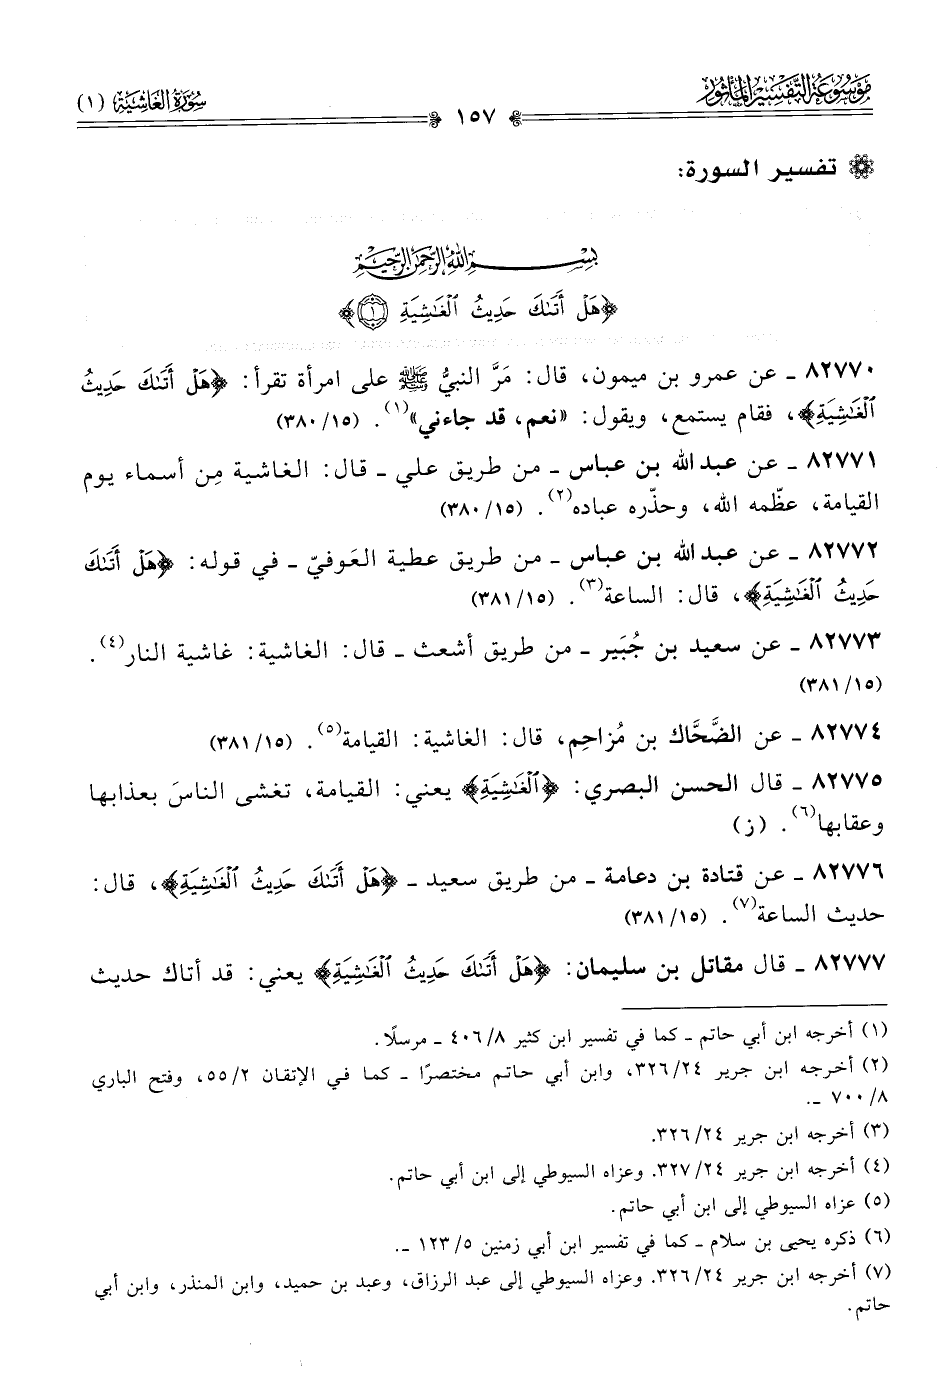 موسوعة التفسير المأثور
سورة الغاشية (١)
١٥٧
تفسير السورة:
بسم الله الرحمن الرحيم
﴿هَلْ أَتَىٰكَ حَدِيثُ ٱلْغَٰشِيَةِ ١﴾
٨٢٧٧٠ ـ عن عمرو بن ميمون، قال: مَرَّ النبيُّ ﷺ على امرأة تقرأ: ﴿هَلْ أَتَىٰكَ حَدِيثُ
ٱلْغَٰشِيَةِ﴾، فقام يستمع، ويقول: «نعم، قد جاءني»(١). (١٥/٣٨٠)
٨٢٧٧١ ـ عن عبد الله بن عباس ـ من طريق علي ـ قال: الغاشية مِن أسماء يوم
القيامة، عظّمه الله، وحذّره عباده(٢). (١٥/٣٨٠)
٨٢٧٧٢ ـ عن عبد الله بن عباس ـ من طريق عطية العَوفيّ ـ في قوله: ﴿هَلْ أَتَىٰكَ
حَدِيثُ ٱلْغَٰشِيَةِ﴾، قال: الساعة(٣). (١٥/٣٨١)
٨٢٧٧٣ ـ عن سعيد بن جُبَير ـ من طريق أشعث ـ قال: الغاشية: غاشية النار(٤).
(١٥/٣٨١)
٨٢٧٧٤ ـ عن الضَّحَّاك بن مُزاحِم، قال: الغاشية: القيامة(٥). (١٥/٣٨١)
٨٢٧٧٥ ـ قال الحسن البصري: ﴿ٱلْغَٰشِيَةِ﴾ يعني: القيامة، تغشى الناسَ بعذابها
وعقابها(٦). (ز)
٨٢٧٧٦ ـ عن قتادة بن دعامة ـ من طريق سعيد ـ ﴿هَلْ أَتَىٰكَ حَدِيثُ ٱلْغَٰشِيَةِ﴾، قال:
حديث الساعة(٧). (١٥/٣٨١)
٨٢٧٧٧ ـ قال مقاتل بن سليمان: ﴿هَلْ أَتَىٰكَ حَدِيثُ ٱلْغَٰشِيَةِ﴾ يعني: قد أتاك حديث
(١) أخرجه ابن أبي حاتم ـ كما في تفسير ابن كثير ٨/ ٤٠٦ ـ مرسلًا.
(٢) أخرجه ابن جرير ٢٤/ ٣٢٦، وابن أبي حاتم مختصرًا ـ كما في الإتقان ٢/ ٥٥، وفتح الباري
٨/ ٧٠٠ ـ.
(٣) أخرجه ابن جرير ٢٤/ ٣٢٦.
(٤) أخرجه ابن جرير ٢٤/ ٣٢٧. وعزاه السيوطي إلى ابن أبي حاتم.
(٥) عزاه السيوطي إلى ابن أبي حاتم.
(٦) ذكره يحيى بن سلام ـ كما في تفسير ابن أبي زمنين ٥/ ١٢٣ ـ.
(٧) أخرجه ابن جرير ٢٤/ ٣٢٦. وعزاه السيوطي إلى عبد الرزاق، وعبد بن حميد، وابن المنذر، وابن أبي
حاتم.